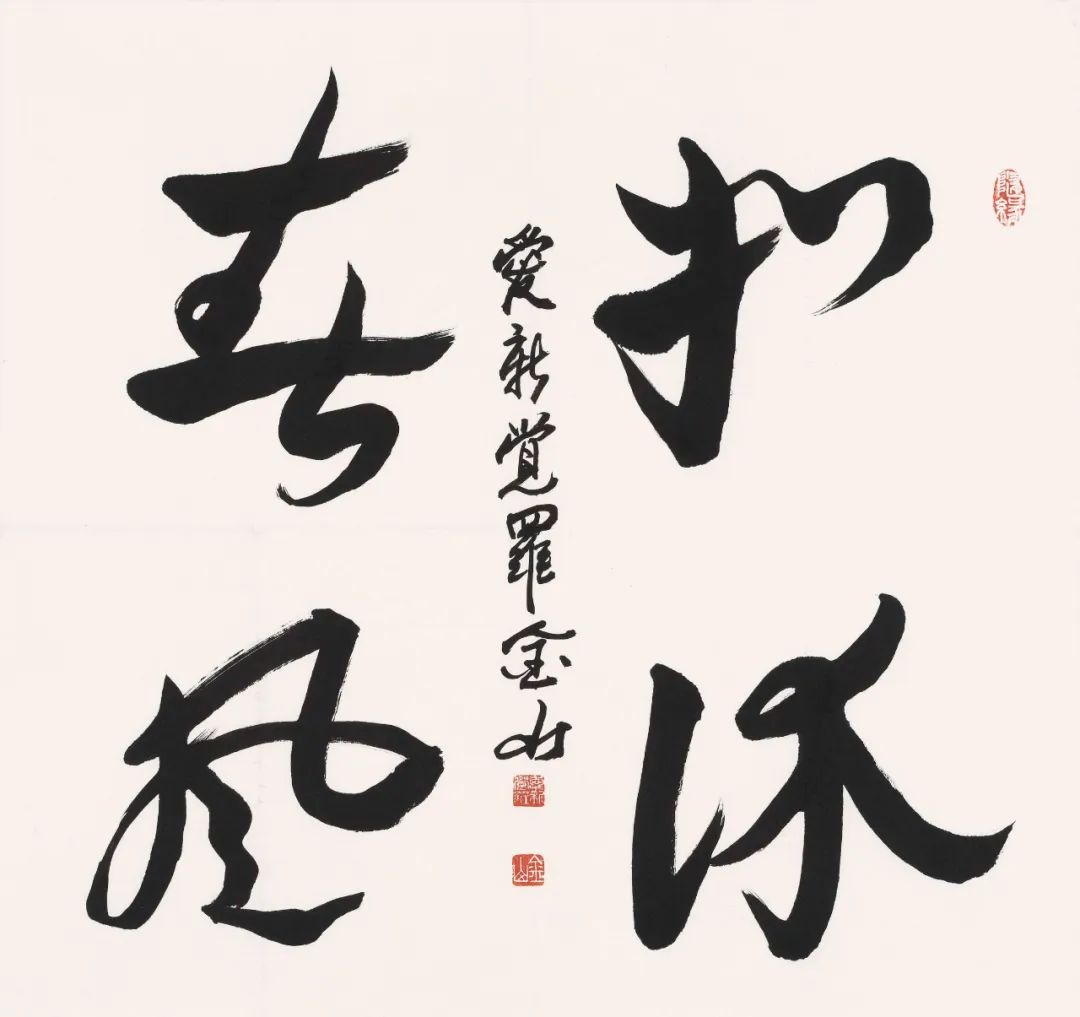 如沐
春風
愛新覺羅金山
金山